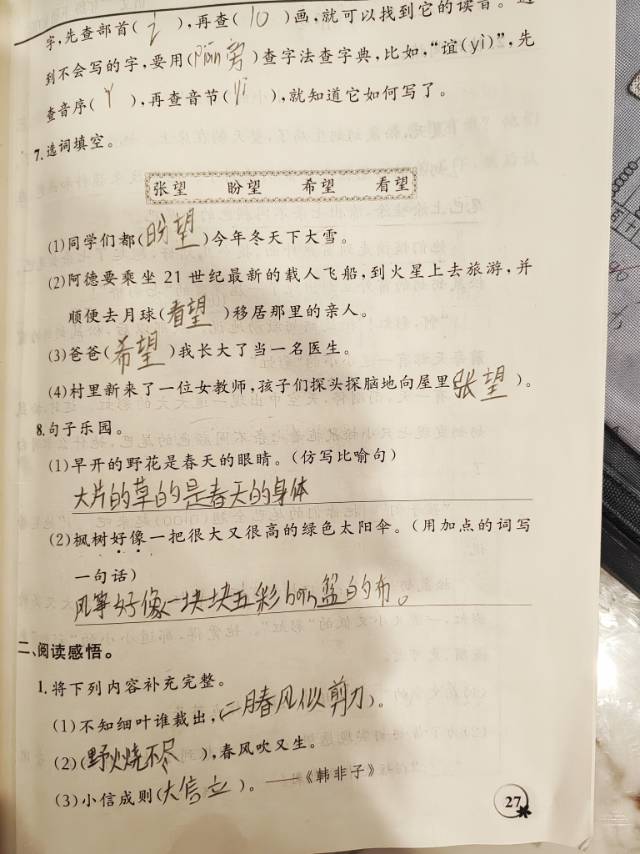 字,先查部首(讠),再查(10)画,就可以找到它的读音。遇
到不会写的字,要用(pīn旁)查字法查字典,比如,“谊(yì)”,先
查音序(Y),再查音节(yi),就知道它如何写了。
7.选词填空。
张望 盼望 希望 看望
(1)同学们都(盼望)今年冬天下大雪。
(2)阿德要乘坐21世纪最新的载人飞船,到火星上去旅游,并
顺便去月球(看望)移居那里的亲人。
(3)爸爸(希望)我长大了当一名医生。
(4)村里新来了一位女教师,孩子们探头探脑地向屋里(张望)。
8.句子乐园。
(1)早开的野花是春天的眼睛。(仿写比喻句)
大片的草的是春天的身体
(2)枫树好像一把很大又很高的绿色太阳伞。(用加点的词写
一句话)
风筝好像一块块五彩bīn盆的布。
二、阅读感悟。
1.将下列内容补充完整。
(1)不知细叶谁裁出,(二月春风似剪刀)。
(2)(野火烧不尽),春风吹又生。
(3)小信成则(大信立)。——《韩非子》
27